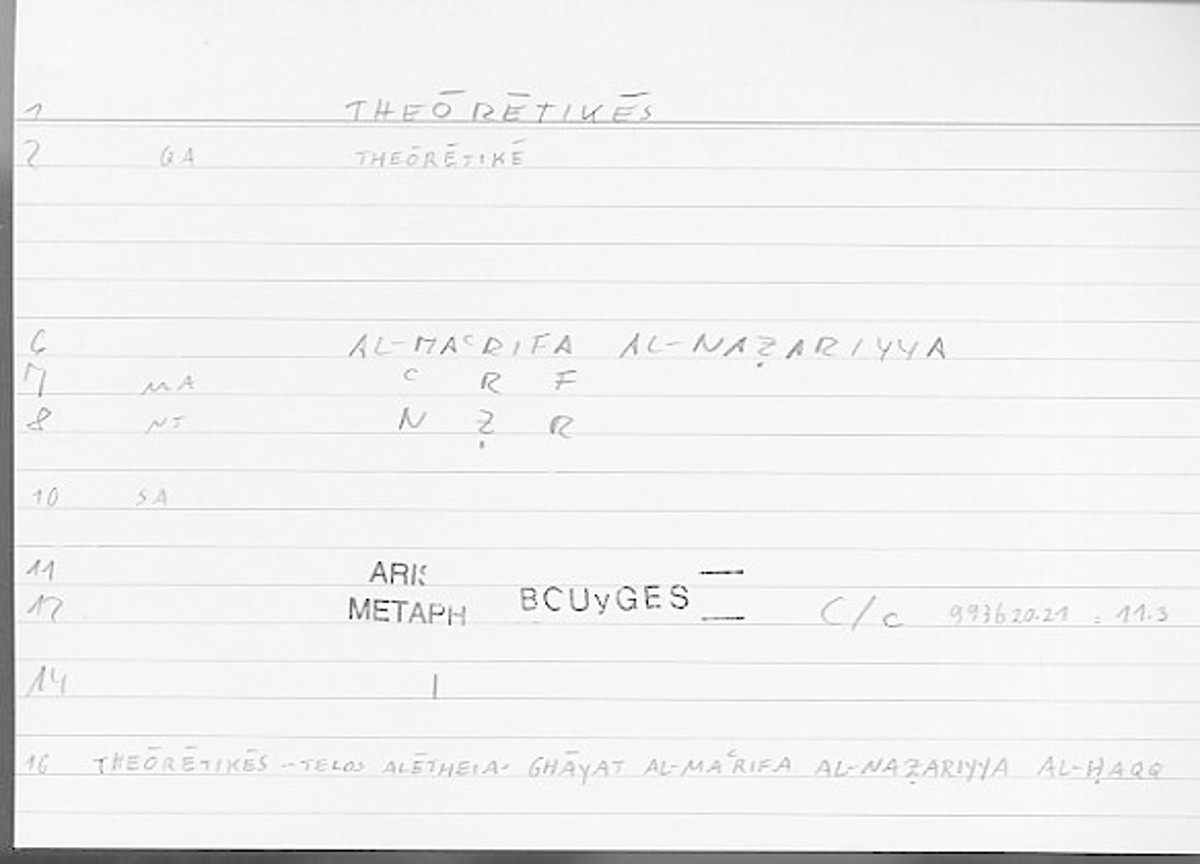 1 THEŌRĒTIKĒS
2 GA THEŌRĒTIKĒ
6 AL-MAʿRIFA AL-NAẒARIYYA
7 MA ʿ R F
8 NT N Ẓ R
10 SA
11 ARIS
12 METAPH BCUyGES C/c 993b20-21 = 11.3
14 |
16 THEŌRĒTIKĒS - TELOS ALĒTHEIA - GHĀYAT AL-MAʿRIFA AL-NAẒARIYYA AL-ḤAQQ